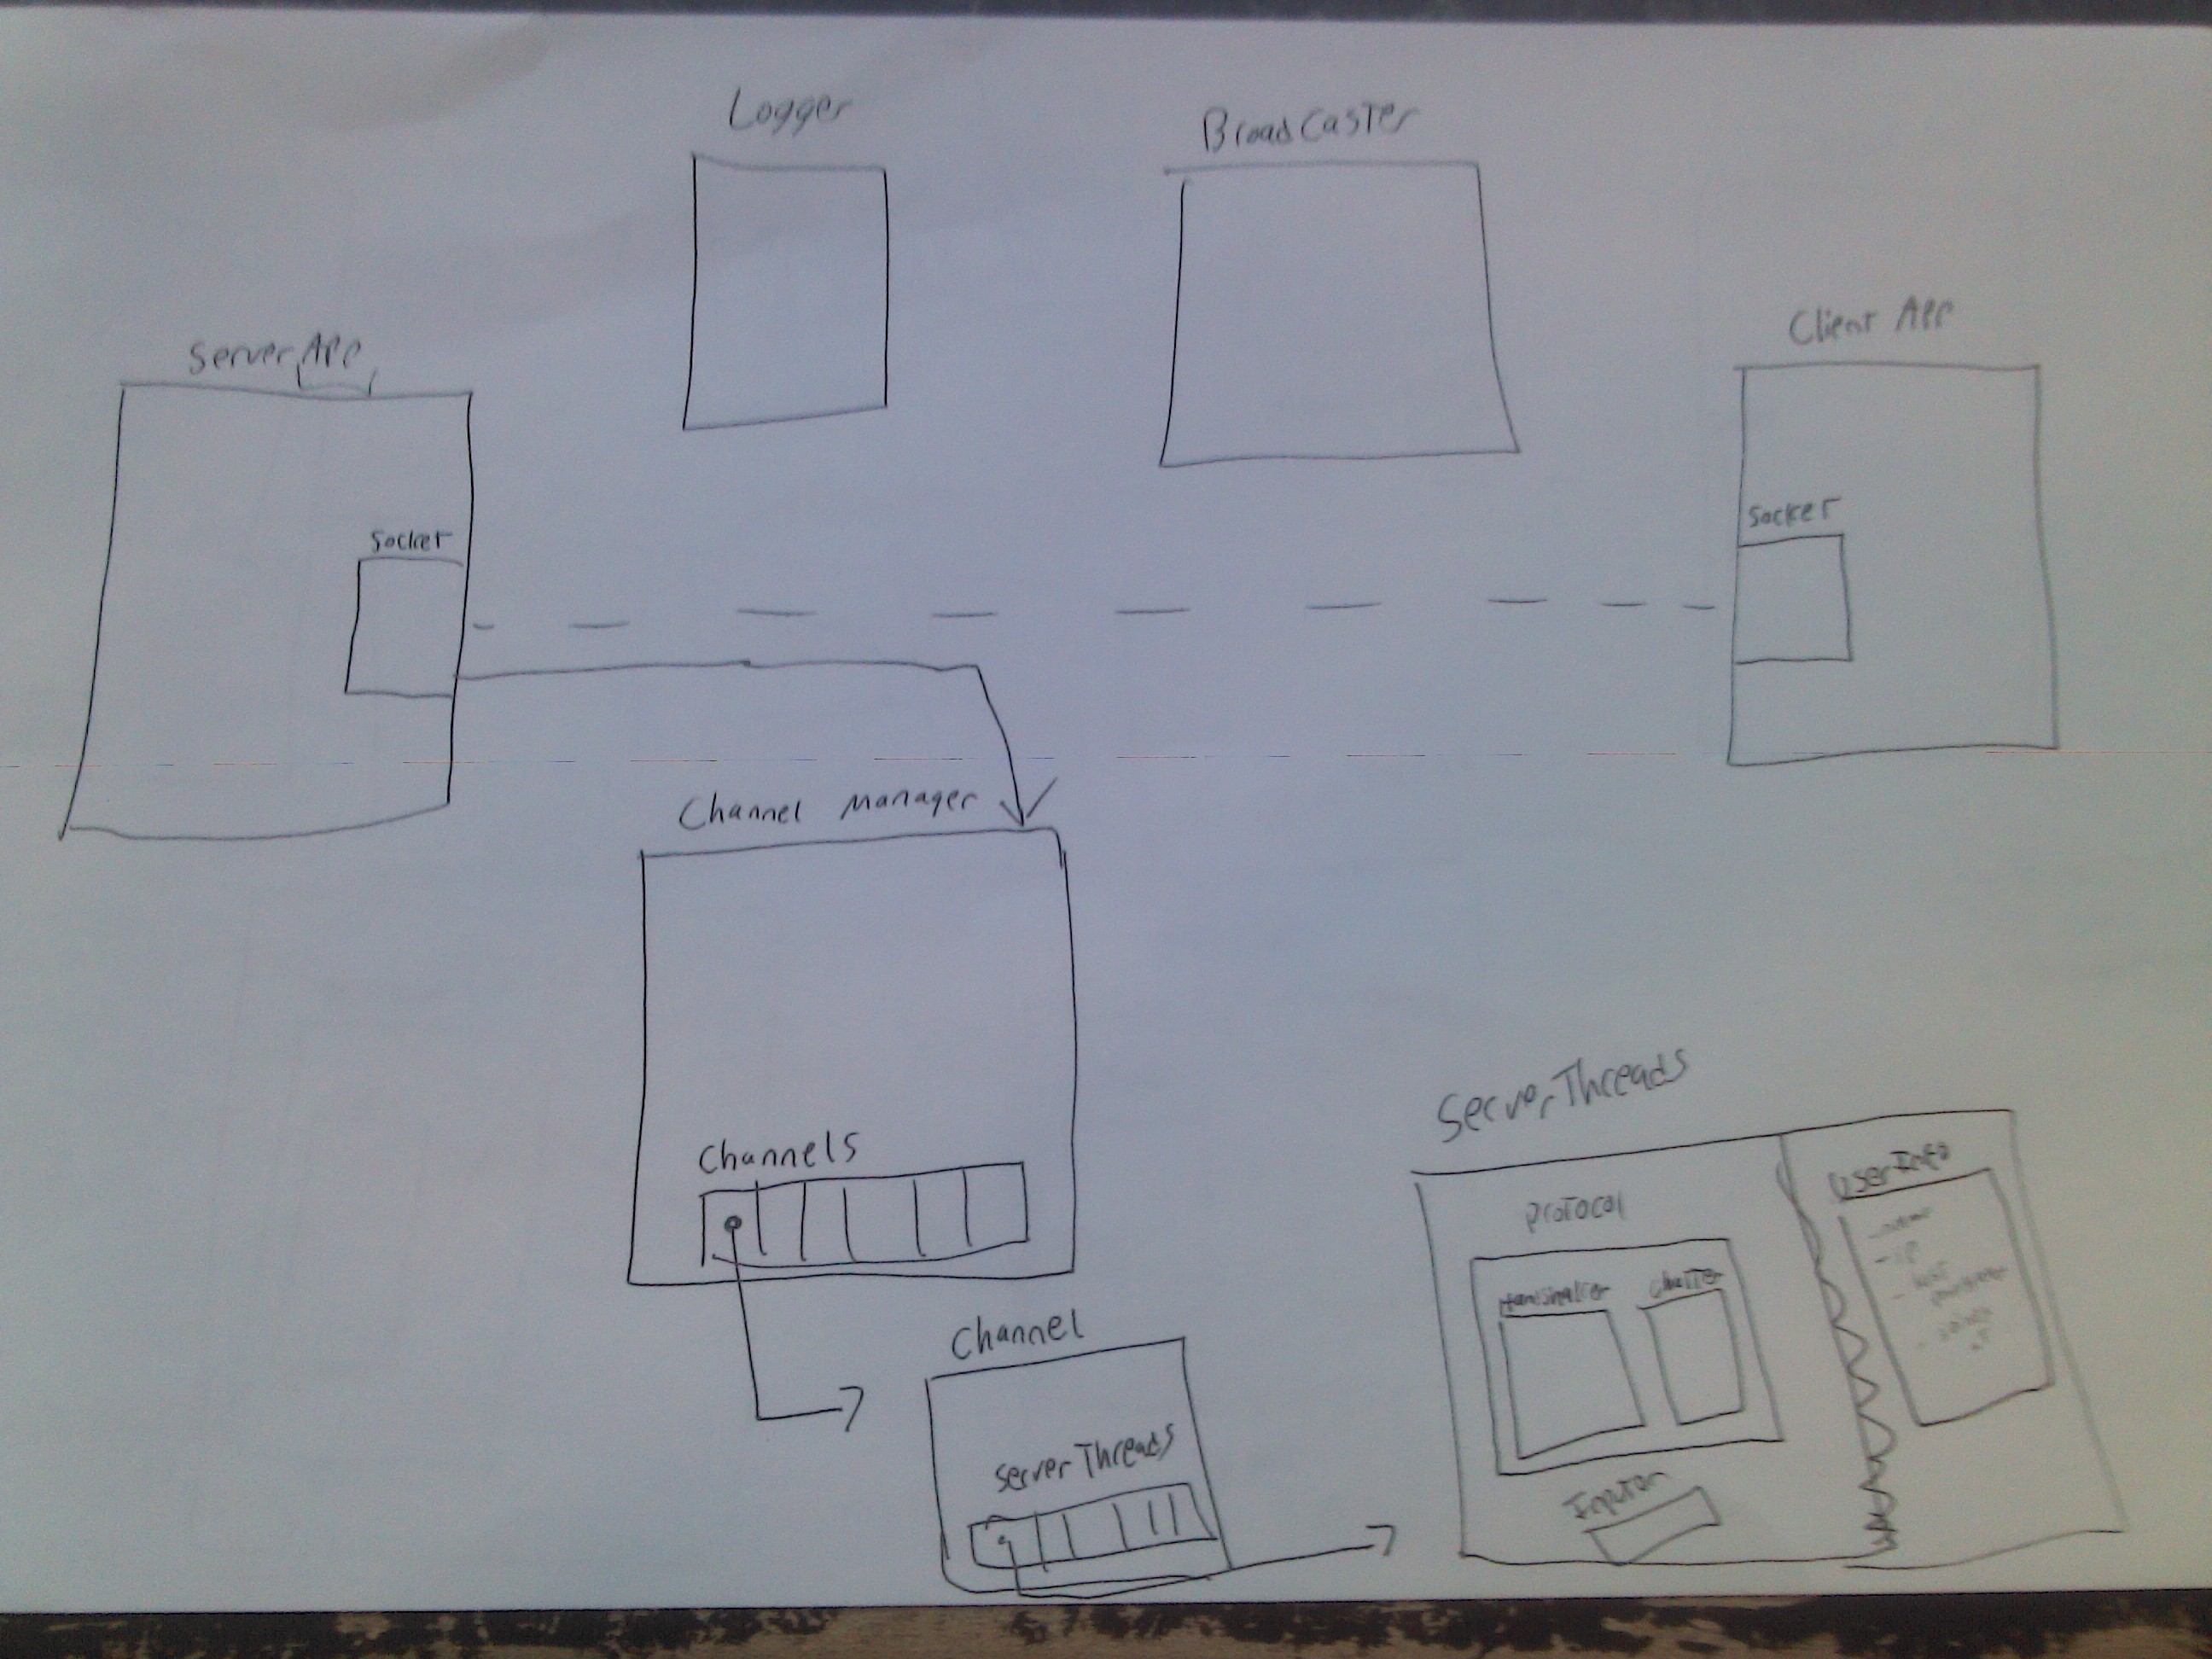 Logger
BroadCaster
Client App
ServerApp
Socket
Socket
Channel Manager
Channels
Channel
ServerThreads
ServerThreads
Protocol
Handshaker
Chatter
Inputor
UserInfo
- IP